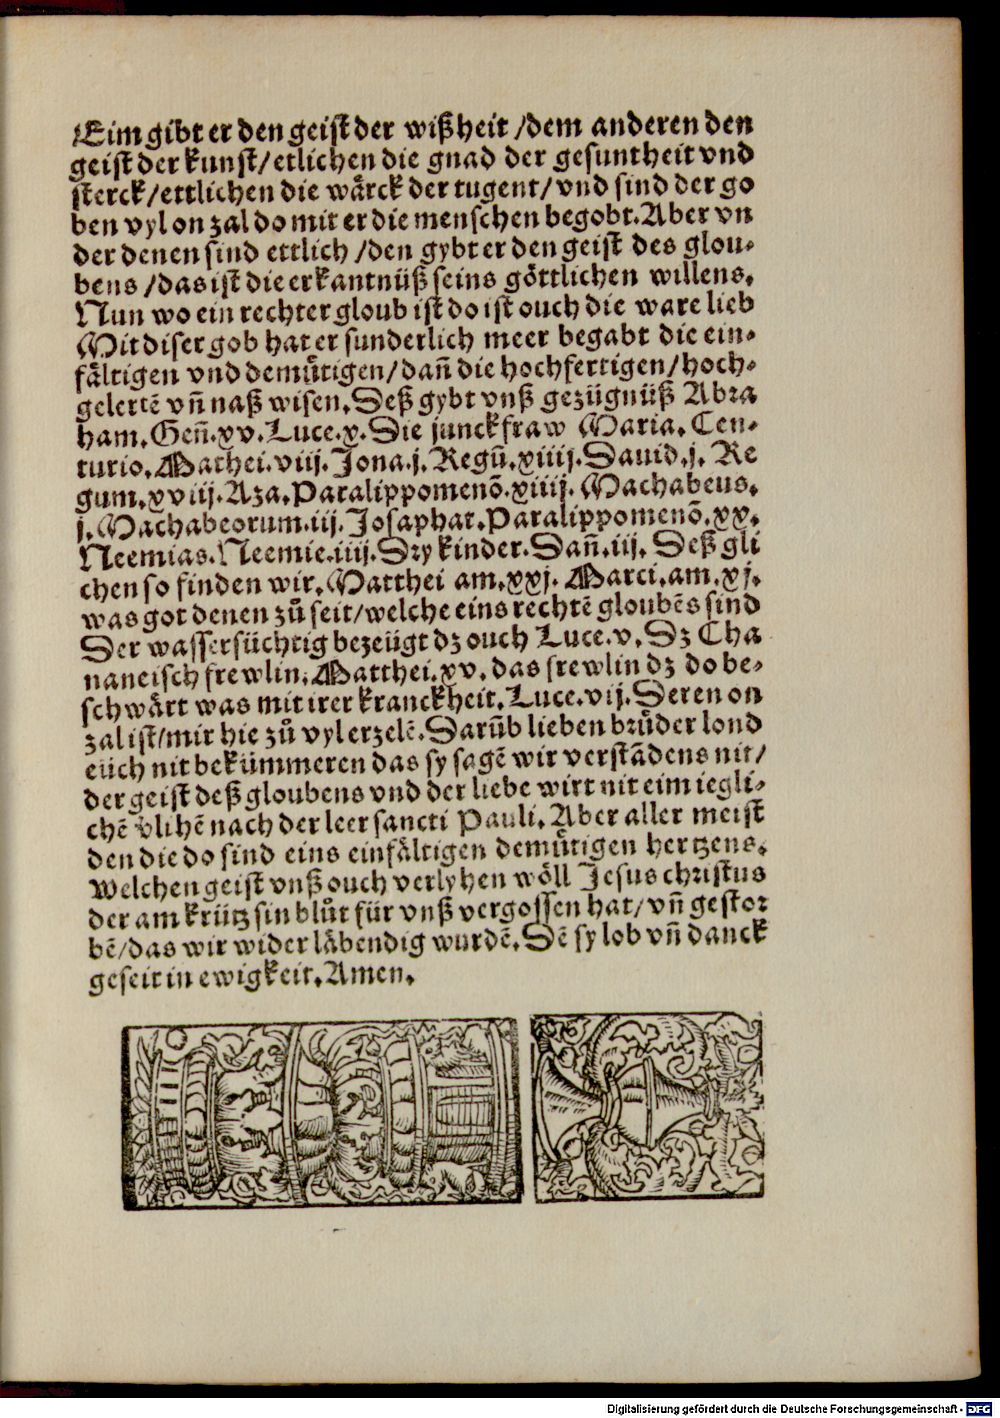 Eim gibt er den geist der wißheit /dem anderen den
geist der kunst/etlichen die gnad der gesuntheit vnd
sterck/ettlichen die wårck der tugent/vnd sind der go
ben vyl on zal do mit er die menschen begobt.Aber vn
der denen sind ettlich /den gybt er den geist des glou⸗
bens /das ist die erkantnüß seins göttlichen willens.
Nun wo ein rechter gloub ist do ist ouch die ware lieb
Mit diser gob hat er sunderlich meer begabt die ein⸗
fältigen vnd demůtigen/dañ die hochfertigen/hoch⸗
gelertẽ vñ naß wisen.Deß gybt vnß gezügnüß Abra
ham.Geñ.xv.Luce.x.Die junckfraw Maria.Cen⸗
turio.Mathei.viij.Jona.j.Regũ.xiiij.Dauid.j.Re
gum.xviij.Aza.Paralippomenõ.xiiij.Machabeus.
j.Machabeorum.iij.Josaphat.Paralippomenõ.xx.
Neemias.Neemie.iiij.Dry kinder.Dañ.iij. Deß gli
chen so finden wir.Matthei am.xxj.Marci.am.xj.
was got denen zů seit/welche eins rechtẽ gloubẽs sind
Der wassersüchtig bezeügt dz ouch Luce.v.Dz Cha
naneisch frewlin.Matthei.xv.das frewlin dz do be⸗
schwårt was mit irer kranckheit.Luce.vij.Deren on
zal ist/mir hie zů vyl erzelẽ.Darũb lieben brůder lond
eüch nit bekümmeren das sy sagẽ wir verstãdens nit/
der geist deß gloubens vnd der liebe wirt nit eim iegli⸗
chẽ v̓lihẽ nach der leer sancti Pauli.Aber aller meist
den die do sind eins einfältigen demůtigen hertzens.
Welchen geist vnß ouch verlyhen wöll Jesus christus
der am krütz sin blůt für vnß vergossen hat/vñ gestor
bẽ/das wir wider låbendig wurdẽ.Dẽ sy lob vñ danck
geseit in ewigkeit.Amen.
Digitalisierung gefördert durch die Deutsche Forschungsgemeinschaft - DFG